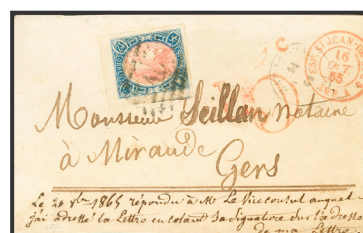 ESP. ST JEAN
16
65
Monsieur Seillan Notaire
à Mirande
Gers
Le 20 1865 répondu à Mr Le Viceconsul auquel
j'ai adressé la Lettre en colant sa signature sur l'adresse
de ma Lettre